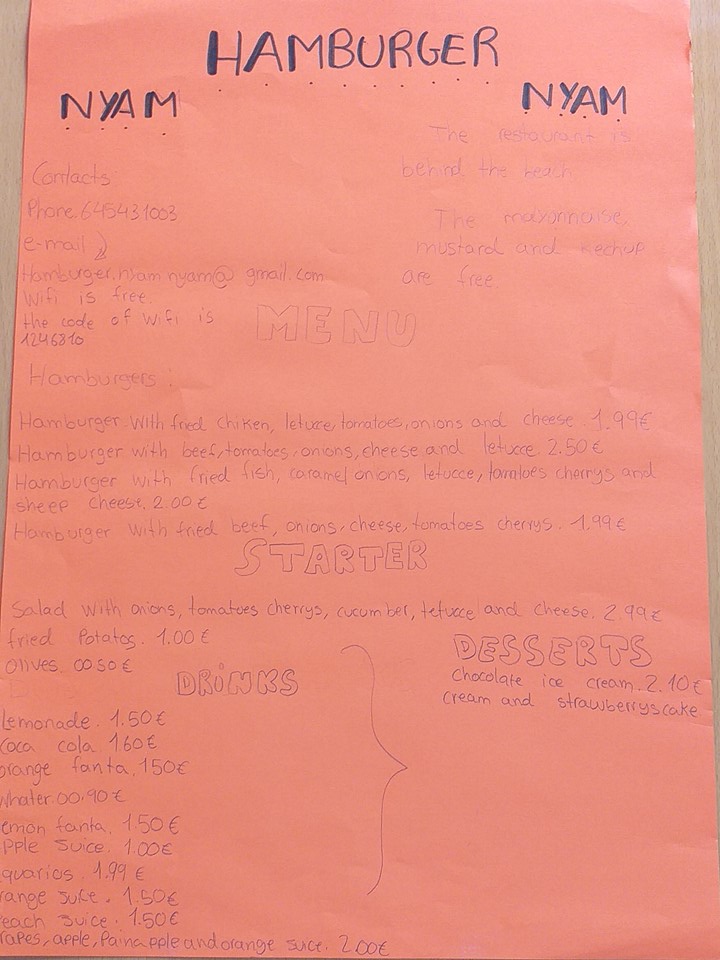 HAMBURGER
NYAM NYAM
The restaurant is
behind the beach.
Contacts
Phone. 645431003
e-mail
Hamburger.nyam nyam@ gmail.com
Wifi is free.
the code of wifi is
1246810
The mayonnaise,
mustard and kechup
are free.
MENU
Hamburgers:
Hamburger with fried chiken, letucce, tomatoes, onions and cheese. 1.99€
Hamburger with beef, tomatoes, onions, cheese and letucce. 2.50€
Hamburger with fried fish, caramel onions, letucce, tomatoes cherrys and
sheep cheese. 2.00€
Hamburger with fried beef, onions, cheese, tomatoes cherrys. 1.99€
STARTER
Salad with onions, tomatoes cherrys, cucumber, letucce and cheese. 2.99€
fried Potatos. 1.00€
Olives 00.50€
DRINKS
Lemonade. 1.50€
Coca cola. 1.60€
orange fanta. 1.50€
Whater. 00.90€
emon fanta. 1.50€
pple suice. 1.00€
quarios. 1.99€
range suice. 1.50€
each suice. 1.50€
rapes, apple, Painapple and orange suice. 2.00€
DESSERTS
chocolate ice cream. 2.10€
cream and strawberryscake